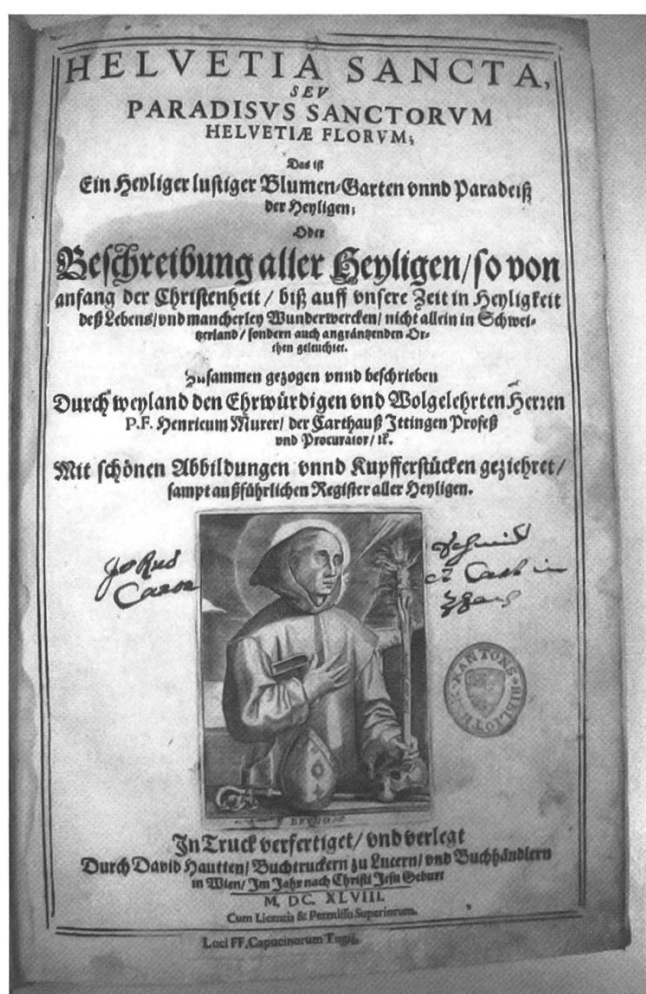 HELVETIA SANCTA,
SEV
PARADISVS SANCTORVM
HELVETIÆ FLORVM;
Das ist
Ein Heyliger lustiger Blumen-Garten vnnd Paradeiß
der Heyligen;
Oder
Beschreibung aller Heyligen/so von
anfang der Christenheit/ biß auff vnsere Zeit in Heyligkeit
deß Lebens/vnd mancherley Wunderwercken/nicht allein in Schwei-
tzerland/sondern auch angräntzenden Or-
then geleuchtet.
Zusammen gezogen vnnd beschrieben
Durch weyland den Ehrwürdigen vnd Wolgelehrten Herren
P.F. Henricum Murer/ der Carthauß Ittingen Profeß
vnd Procurator/ ꝛc.
Mit schönen Abbildungen vnnd Kupfferstücken geziehret/
sampt außführlichen Register aller Heyligen.
KANTONS BIBLIOTH
S BRVNO
In Truck verfertiget/ vnd verlegt
Durch David Hautten/Buchtruckern zu Lucern/vnd Buchhändlern
in Wien/ Im Jahr nach Christi Jesu Geburt
M. DC. XLVIII.
Cum Licentia & Permissu Superiorum.
Loci FF. Capucinorum Tugij.